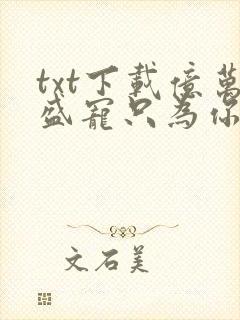 txt下載億萬
盛寵只為你
文石美